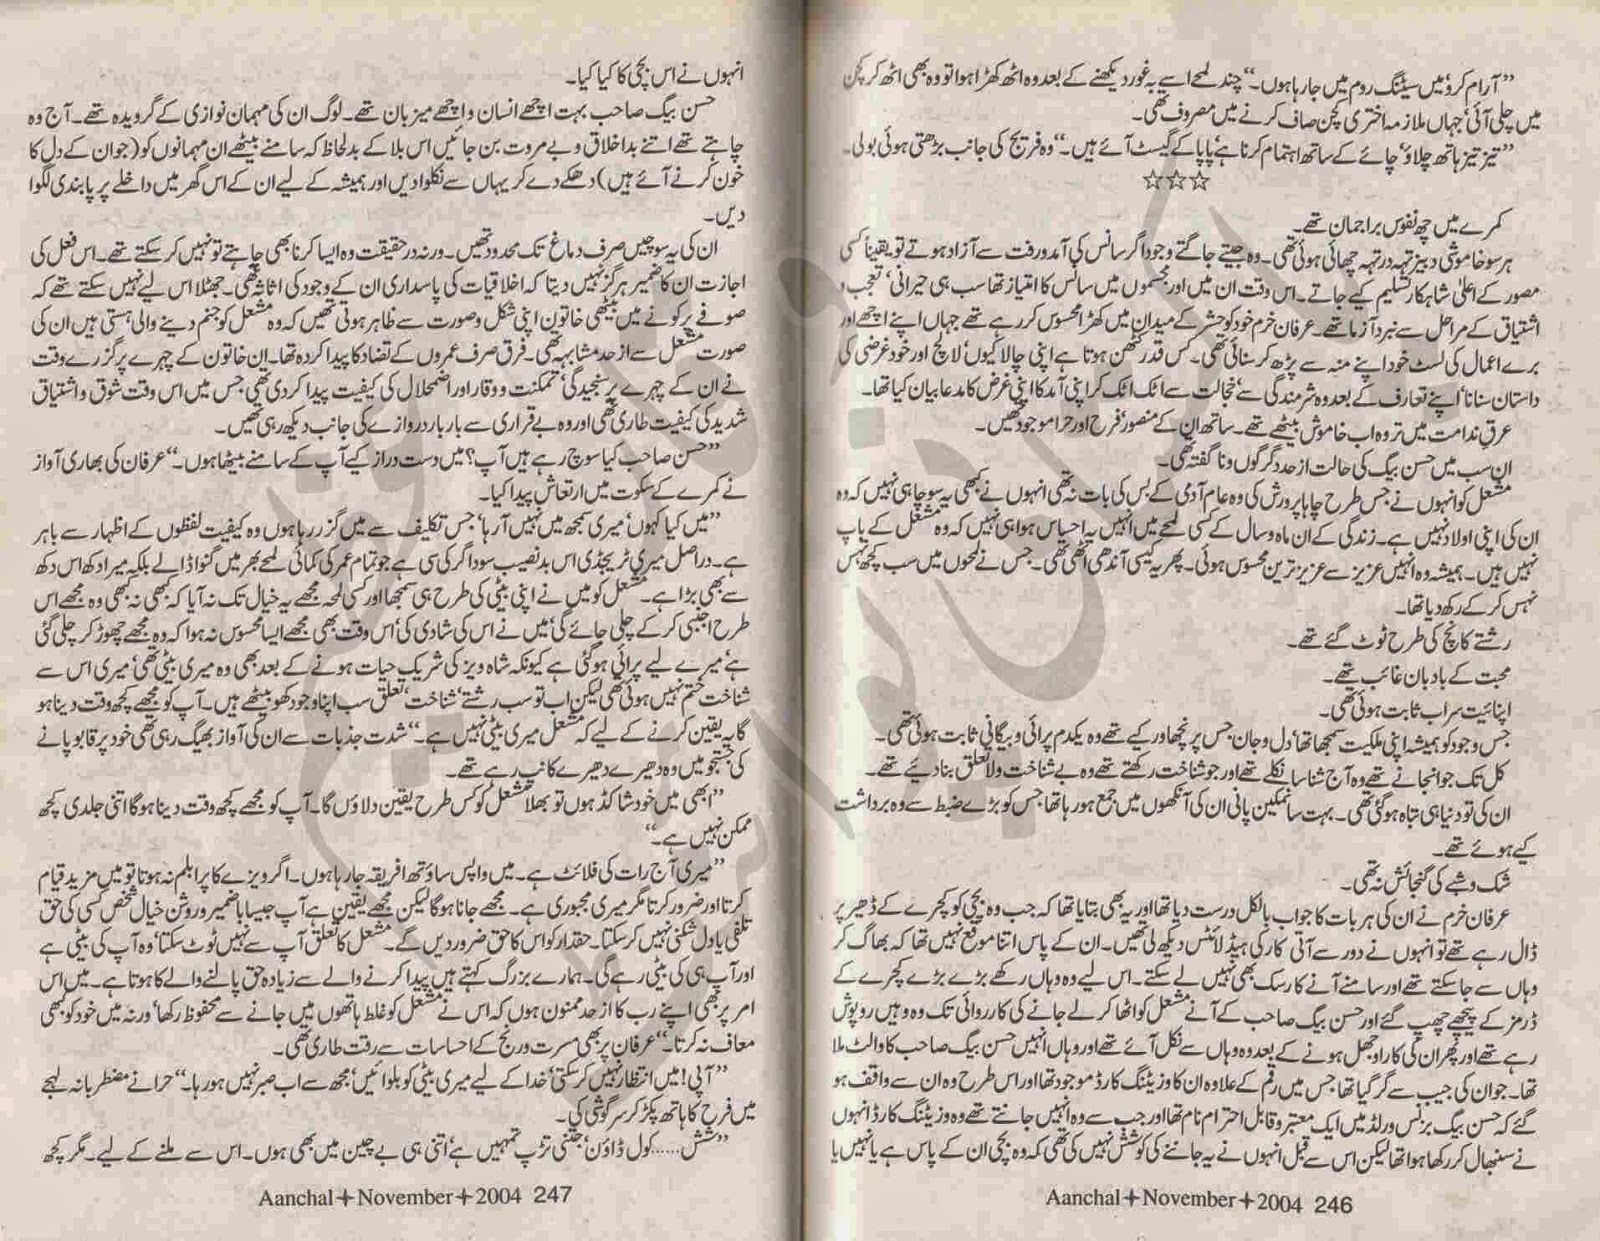 ”آرام کرو‘ میں سیٹنگ روم میں جا رہا ہوں۔“ چند لمحے اسے بہ غور دیکھنے کے بعد وہ اٹھ کھڑا ہوا تو وہ بھی اٹھ کر کچن
میں چلی آئی‘ جہاں ملازمہ اختری کچن صاف کرنے میں مصروف تھی۔
”تیز تیز ہاتھ چلاؤ‘ چائے کے ساتھ اہتمام کرنا ہے‘ پاپا کے گیسٹ آئے ہیں۔“ وہ فریج کی جانب بڑھتی ہوئی بولی۔
☆☆☆
کمرے میں چھ نفوس براجمان تھے۔
ہر سو خاموشی دبیز تہہ در تہہ چھائی ہوئی تھی۔ وہ جیتے جاگتے وجود اگر سانس کی آمد و رفت سے آزاد ہوتے تو یقیناً کسی
مصور کے اعلیٰ شاہکار تسلیم کیے جاتے۔ اس وقت ان میں اور مجسموں میں سانس کا امتیاز تھا سب ہی حیرانی‘ تعجب و
اشتیاق کے مراحل سے نبرد آزما تھے۔ عرفان خرم خود کو حشر کے میدان میں کھڑا محسوس کر رہے تھے جہاں اپنے اچھے اور
برے اعمال کی لسٹ خود اپنے منہ سے پڑھ کر سنائی تھی۔ کس قدر کٹھن ہوتا ہے اپنی چالاکیوں‘ لالچ اور خود غرضی کی
داستان سنانا‘ اپنے تعارف کے بعد وہ شرمندگی سے‘ خجالت سے اٹک اٹک کر اپنی آمد کا اپنی غرض کا مدعا بیان کیا تھا۔
عرق ندامت میں تر وہ اب خاموش بیٹھے تھے۔ ساتھ ان کے منصور‘ فرح اور حرا موجود تھیں۔
ان سب میں حسن بیگ کی حالت از حد دگرگوں و ناگفتہ تھی۔
مشعل کو انہوں نے جس طرح چاہا پرورش کی وہ عام آدمی کے بس کی بات نہ تھی انہوں نے کبھی یہ سوچا ہی نہیں کہ وہ
ان کی اپنی اولاد نہیں ہے۔ زندگی کے ان ماہ و سال کے کسی لمحے میں انہیں یہ احساس ہوا ہی نہیں کہ وہ مشعل کے باپ
نہیں ہیں۔ ہمیشہ وہ انہیں عزیز سے عزیز ترین محسوس ہوئی۔ پھر یہ کیسی آندھی اٹھی تھی۔ جس نے لمحوں میں سب کچھ تہس
نہس کر کے رکھ دیا تھا۔
رشتے کانچ کی طرح ٹوٹ گئے تھے۔
محبت کے بادبان غائب تھے۔
اپنائیت سراب ثابت ہوئی تھی۔
جس وجود کو ہمیشہ اپنی ملکیت سمجھا تھا‘ دل و جان جس پر نچھاور کیے تھے وہ یکدم پرائی و بیگانی ثابت ہوئی تھی۔
کل تک جو انجانے تھے وہ آج شناسا نکلے تھے اور جو شناخت رکھتے تھے وہ بے شناخت و لا تعلق بنا دیئے تھے۔
ان کی تو دنیا ہی تباہ ہو گئی تھی۔ بہت سا نمکین پانی ان کی آنکھوں میں جمع ہو رہا تھا‘ جس کو بڑے ضبط سے وہ برداشت
کیے ہوئے تھے۔
شک و شبے کی گنجائش نہ تھی۔
عرفان خرم نے ان کی ہر بات کا جواب بالکل درست دیا تھا اور یہ بھی بتایا تھا کہ جب وہ بچی کو کچرے کے ڈھیر پر
ڈال رہے تھے تو انہوں نے دور سے آتی کار کی ہیڈ لائٹس دیکھ لی تھیں۔ ان کے پاس اتنا موقع نہیں تھا کہ بھاگ کر
وہاں سے جا سکتے تھے اور سامنے آنے کا رسک بھی نہیں لے سکتے۔ اس لیے وہ وہاں رکھے بڑے بڑے کچرے کے
ڈرمز کے پیچھے چھپ گئے اور حسن بیگ صاحب کے آنے مشعل کو اٹھا کر لے جانے کی کارروائی تک وہ وہیں روپوش
رہے تھے اور پھر ان کی کار اوجھل ہونے کے بعد وہ وہاں سے نکل آئے تھے اور وہاں انہیں حسن بیگ صاحب کا والٹ ملا
تھا۔ جو ان کی جیب سے گر گیا تھا‘ جس میں رقم کے علاوہ ان کا وزیٹنگ کارڈ موجود تھا اور اس طرح وہ ان سے واقف ہو
گئے کہ حسن بیگ بزنس ورلڈ میں ایک معتبر و قابل احترام نام تھا اور جب سے وہ انہیں جانتے تھے وہ وزیٹنگ کارڈ انہوں
نے سنبھال کر رکھا ہوا تھا لیکن اس سے قبل انہوں نے یہ جاننے کی کوشش نہیں کی تھی کہ وہ بچی ان کے پاس ہے یا نہیں یا
Aanchal✦November✦2004 246
انہوں نے اس بچی کا کیا کیا۔
حسن بیگ صاحب بہت اچھے انسان و اچھے میزبان تھے۔ لوگ ان کی مہمان نوازی کے گرویدہ تھے۔ آج وہ
چاہتے تھے اتنے بد اخلاق و بے مروت بن جائیں اس بلا کے بدلحاظ کہ سامنے بیٹھے ان مہمانوں کو (جو ان کے دل کا
خون کرنے آئے ہیں) دھکے دے کر یہاں سے نکلوا دیں اور ہمیشہ کے لیے ان کے اس گھر میں داخلے پر پابندی لگوا
دیں۔
ان کی یہ سوچیں صرف دماغ تک محدود تھیں۔ ورنہ در حقیقت وہ ایسا کرنا بھی چاہتے تو نہیں کر سکتے تھے۔ اس فعل کی
اجازت ان کا ضمیر ہرگز نہیں دیتا کہ اخلاقیات کی پاسداری ان کے وجود کی اثاث تھی۔ جھٹلا اس لیے نہیں سکتے تھے کہ
صوفے پر کونے میں بیٹھی خاتون اپنی شکل و صورت سے ظاہر ہوتی تھیں کہ وہ مشعل کو جنم دینے والی ہستی ہیں ان کی
صورت مشعل سے از حد مشابہہ تھی۔ فرق صرف عمروں کے تضاد کا پیدا کردہ تھا۔ ان خاتون کے چہرے پر گزرے وقت
نے ان کے چہرے پر سنجیدگی‘ تمکنت و وقار اور اضمحلال کی کیفیت پیدا کر دی تھی جس میں اس وقت شوق و اشتیاق
شدید کی کیفیت طاری تھی اور وہ بے قراری سے بار بار دروازے کی جانب دیکھ رہی تھیں۔
”حسن صاحب کیا سوچ رہے ہیں آپ؟ میں دست دراز کیے آپ کے سامنے بیٹھا ہوں۔“ عرفان کی بھاری آواز
نے کمرے کے سکوت میں ارتعاش پیدا کیا۔
”میں کیا کہوں‘ میری سمجھ میں نہیں آ رہا‘ جس تکلیف سے میں گزر رہا ہوں وہ کیفیت لفظوں کے اظہار سے باہر
ہے۔ دراصل میری ٹریجڈی اس بدنصیب سوداگر کی سی ہے جو تمام عمر کی کمائی لمحے بھر میں گنوا ڈالے بلکہ میرا دکھ اس دکھ
سے بھی بڑا ہے۔ مشعل کو میں نے اپنی بیٹی کی طرح ہی سمجھا اور کسی لمحہ مجھے یہ خیال تک نہ آیا کہ کبھی نہ کبھی وہ مجھے اس
طرح اجنبی کر کے چلی جائے گی‘ میں نے اس کی شادی کی‘ اس وقت بھی مجھے ایسا محسوس نہ ہوا کہ وہ مجھے چھوڑ کر چلی گئی
ہے‘ میرے لیے پرائی ہو گئی ہے کیونکہ شاہ ویز کی شریک حیات ہونے کے بعد بھی وہ میری بیٹی تھی‘ میری اس سے
شناخت ختم نہیں ہوئی تھی لیکن اب تو سب رشتے‘ شناخت‘ تعلق سب اپنا وجود کھو بیٹھے ہیں۔ آپ کو مجھے کچھ وقت دینا ہو
گا یہ یقین کرنے کے لیے کہ مشعل میری بیٹی نہیں ہے۔“ شدت جذبات سے ان کی آواز بھیگ رہی تھی خود پر قابو پانے
کی جستجو میں وہ دھیرے دھیرے کانپ رہے تھے۔
”ابھی میں خود شاکڈ ہوں تو بھلا مشعل کو کس طرح یقین دلاؤں گا۔ آپ کو مجھے کچھ وقت دینا ہو گا اتنی جلدی کچھ
ممکن نہیں ہے۔“
”میری آج رات کی فلائٹ ہے۔ میں واپس ساؤتھ افریقہ جا رہا ہوں۔ اگر ویزے کا پرابلم نہ ہوتا تو میں مزید قیام
کرتا اور ضرور کرتا مگر میری مجبوری ہے۔ مجھے جانا ہو گا لیکن مجھے یقین ہے آپ جیسا باضمیر و روشن خیال شخص کسی کی حق
تلفی یا دل شکنی نہیں کر سکتا۔ حقدار کو اس کا حق ضرور دیں گے۔ مشعل کا تعلق آپ سے نہیں ٹوٹ سکتا‘ وہ آپ کی بیٹی ہے
اور آپ ہی کی بیٹی رہے گی۔ ہمارے بزرگ کہتے ہیں پیدا کرنے والے سے زیادہ حق پالنے والے کا ہوتا ہے۔ میں اس
امر پر بھی اپنے رب کا از حد ممنون ہوں کہ اس نے مشعل کو غلط ہاتھوں میں جانے سے محفوظ رکھا‘ ورنہ میں خود کو کبھی
معاف نہ کرتا۔“ عرفان پر بھی مسرت و رنج کے احساسات سے رقت طاری تھی۔
”آپی! میں انتظار نہیں کر سکتی‘ خدا کے لیے میری بیٹی کو بلوائیں‘ مجھ سے اب صبر نہیں ہو رہا۔“ حرا نے مضطربانہ لہجے
میں فرح کا ہاتھ پکڑ کر سرگوشی کی۔
”شش...... کول ڈاؤن‘ جتنی تڑپ تمہیں ہے‘ اتنی ہی بے چین میں بھی ہوں۔ اس سے ملنے کے لیے۔ مگر کچھ
Aanchal✦November✦2004 247